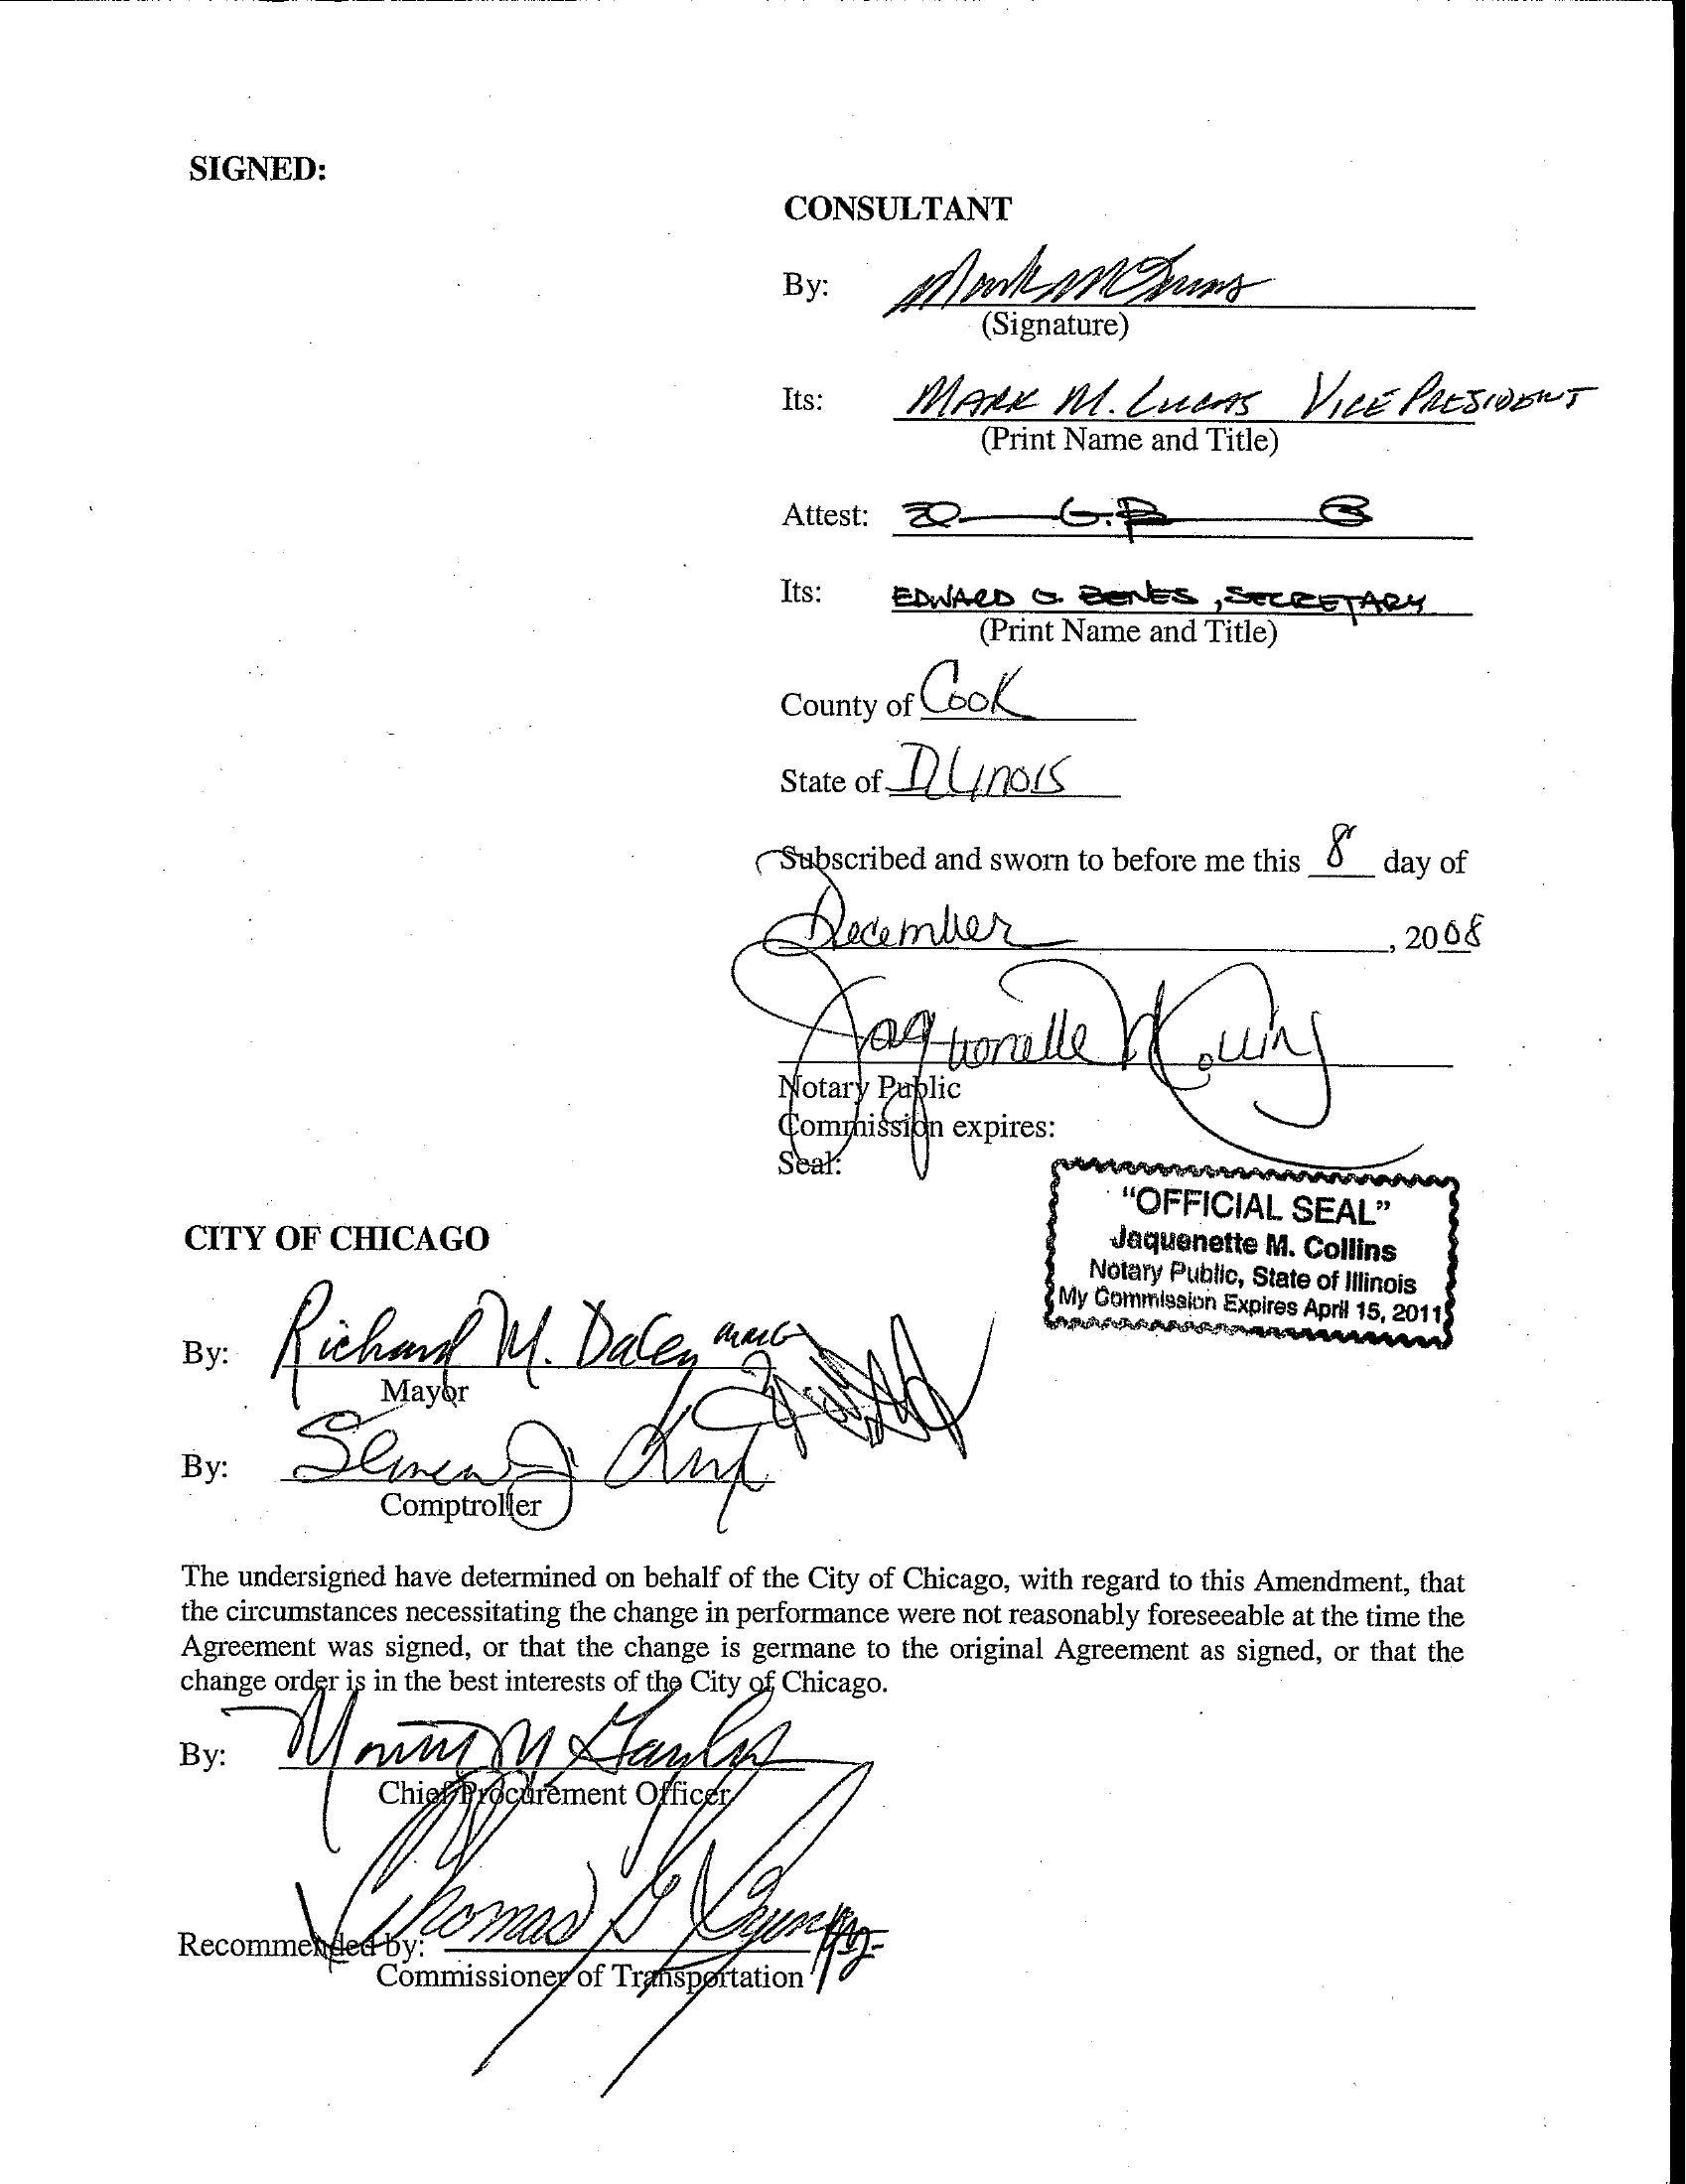 SIGNED:
CONSULTANT
By:
(Signature)
Its: MARK M. LUCAS VICE PRESIDENT
(Print Name and Title)
Attest:
Its: EDWARD G. BENES, SECRETARY
(Print Name and Title)
County of Cook
State of Illinois
Subscribed and sworn to before me this 8 day of
December , 2008
Jaquenette M Collins
Notary Public
Commission expires:
Seal:
"OFFICIAL SEAL"
Jaquenette M. Collins
Notary Public, State of Illinois
My Commission Expires April 15, 2011
CITY OF CHICAGO
By: Richard M. Daley
Mayor
By:
Comptroller
The undersigned have determined on behalf of the City of Chicago, with regard to this Amendment, that
the circumstances necessitating the change in performance were not reasonably foreseeable at the time the
Agreement was signed, or that the change is germane to the original Agreement as signed, or that the
change order is in the best interests of the City of Chicago.
By:
Chief Procurement Officer
Recommended by: Thomas G
Commissioner of Transportation